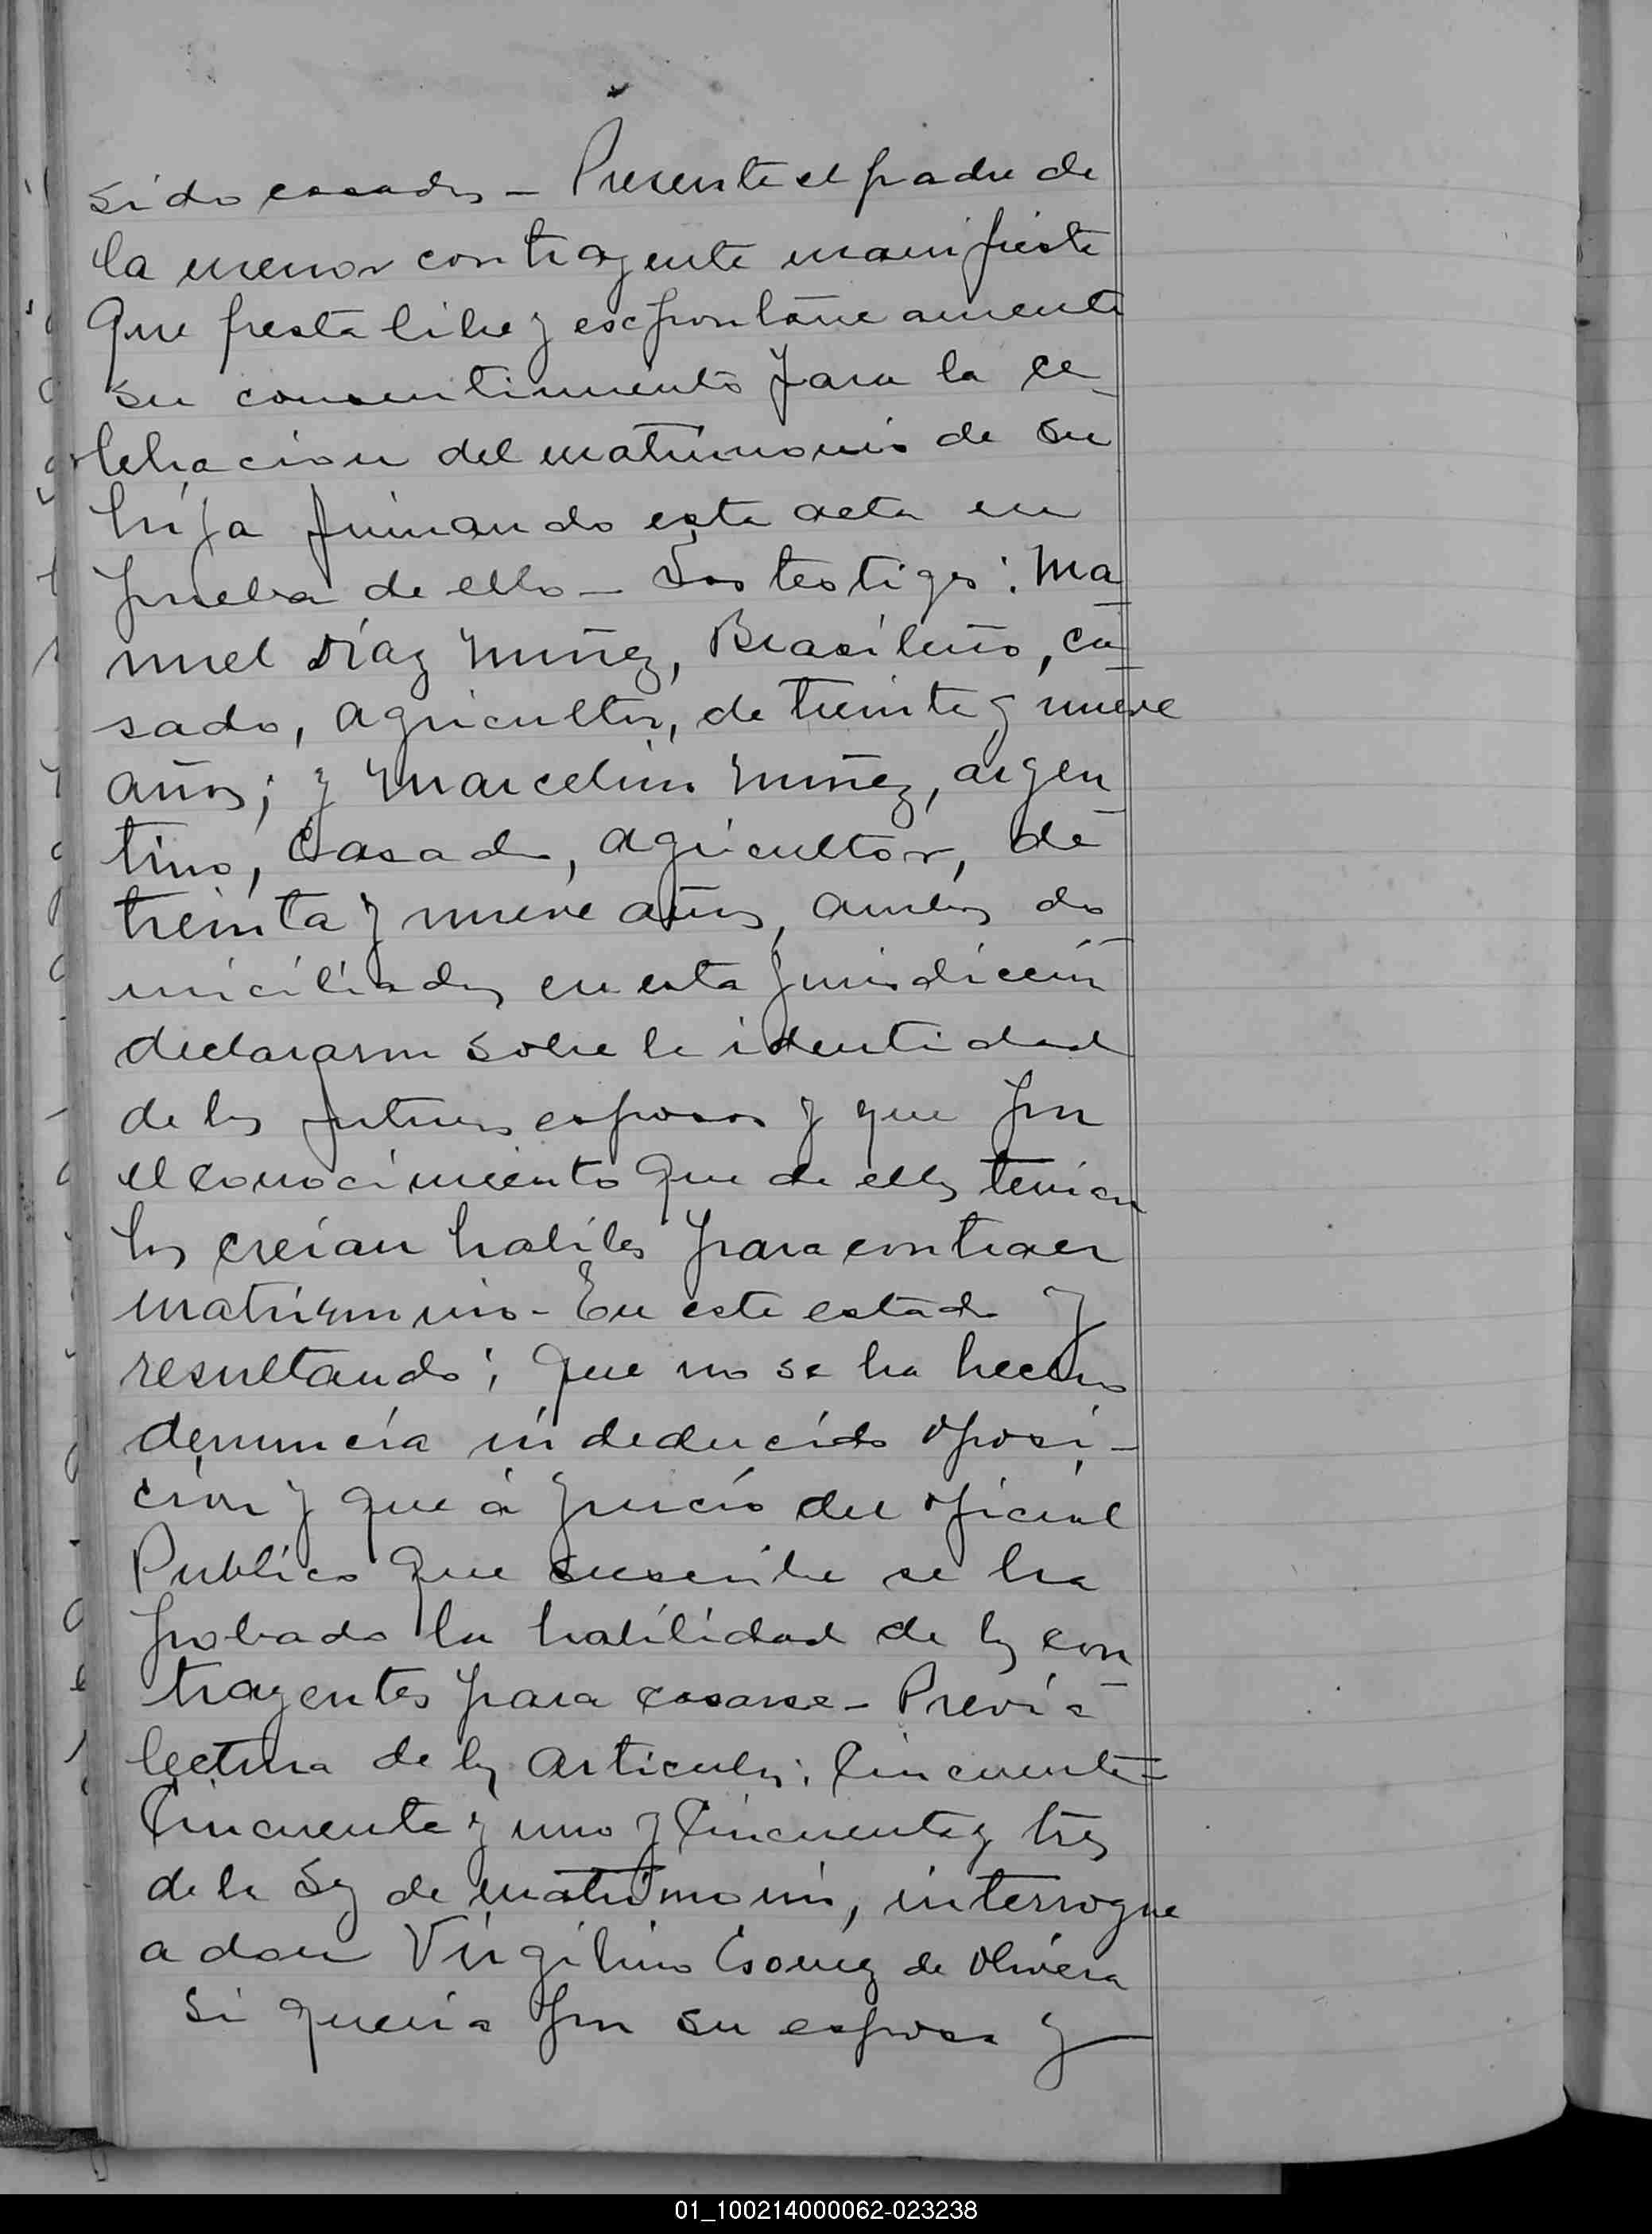 sido casados – Presente el padre de
la menor contrayente manifiesta
que presta libre y expontáneamente
su consentimiento para la ce-
lebracion del matrimonio de su
hija firmando esta acta en
prueba de ello – Los testigos: Ma-
nuel Díaz Nuñez, Brasileño, ca-
sado, agricultor, de treinta y nueve
años; y Marcelino Nuñez, argen-
tino, casado, agricultor, de
treinta y nueve años, ambos do-
miciliados en esta jurisdiccion
declararon sobre la identidad
de los futuros esposos y que por
el conocimiento que de ellos tenian
los creían habiles para contraer
matrimonio – En este estado y
resultando; que no se ha hecho
denuncia ni deducido oposi-
cion y que á juicio del oficial
Publico que suscribe se ha
probado la habilidad de los con-
trayentes para casarse – Previa
lectura de los articulos: Cincuenta
Cincuenta y uno y Cincuenta y tres
de la Ley de matrimonio, interrogue
a don Virgilino Gomez de Olivera
si queria por su esposa y
01_100214000062-023238